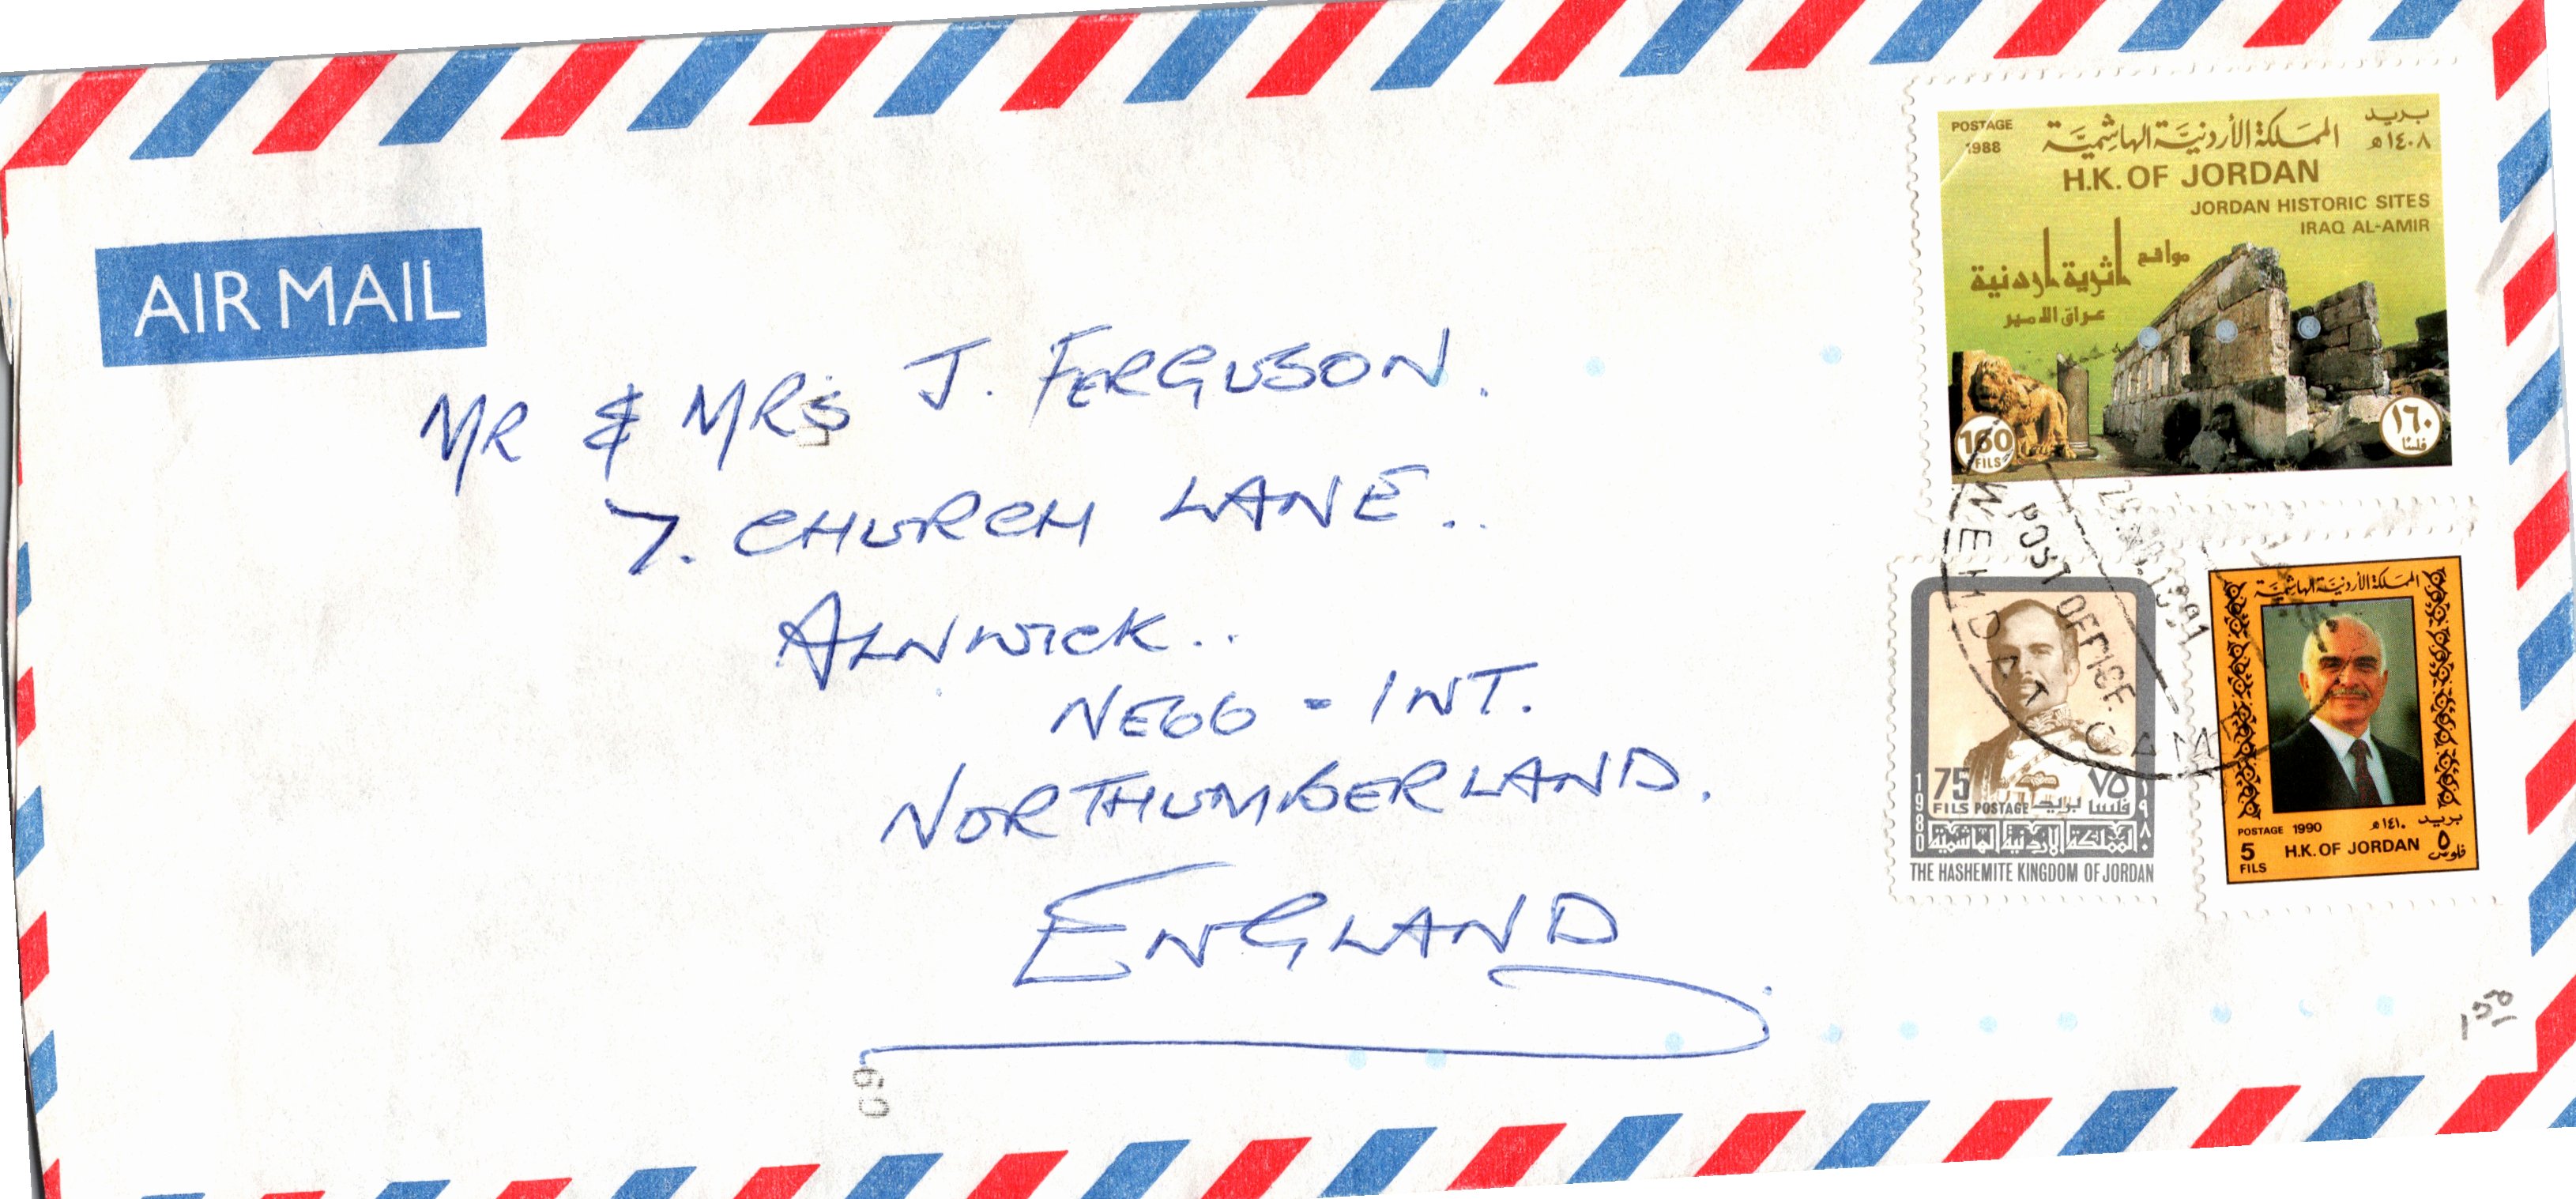 AIR MAIL
MR & MRS J. FERGUSON.
7. CHURCH LANE..
ALNWICK..
NE66 - INT.
NORTHUMBERLAND.
ENGLAND
60
1 50
POSTAGE
1988
المملكة الأردنية الهاشمية
بريد
١٤٠٨ هـ
H.K. OF JORDAN
JORDAN HISTORIC SITES
IRAQ AL-AMIR
مواقع اثرية اردنية
عراق الامير
160
FILS
١٦٠
فلسًا
WEHDAT CAMP
POST OFFICE
1991
1980
75
FILS POSTAGE
٧٥
فلسا بريد
١٩٨٠
المملكة الاردنية الهاشمية
THE HASHEMITE KINGDOM OF JORDAN
المملكة الأردنية الهاشمية
POSTAGE 1990
بريد ١٤١٠ هـ
5
FILS
H.K. OF JORDAN
٥
فلوس